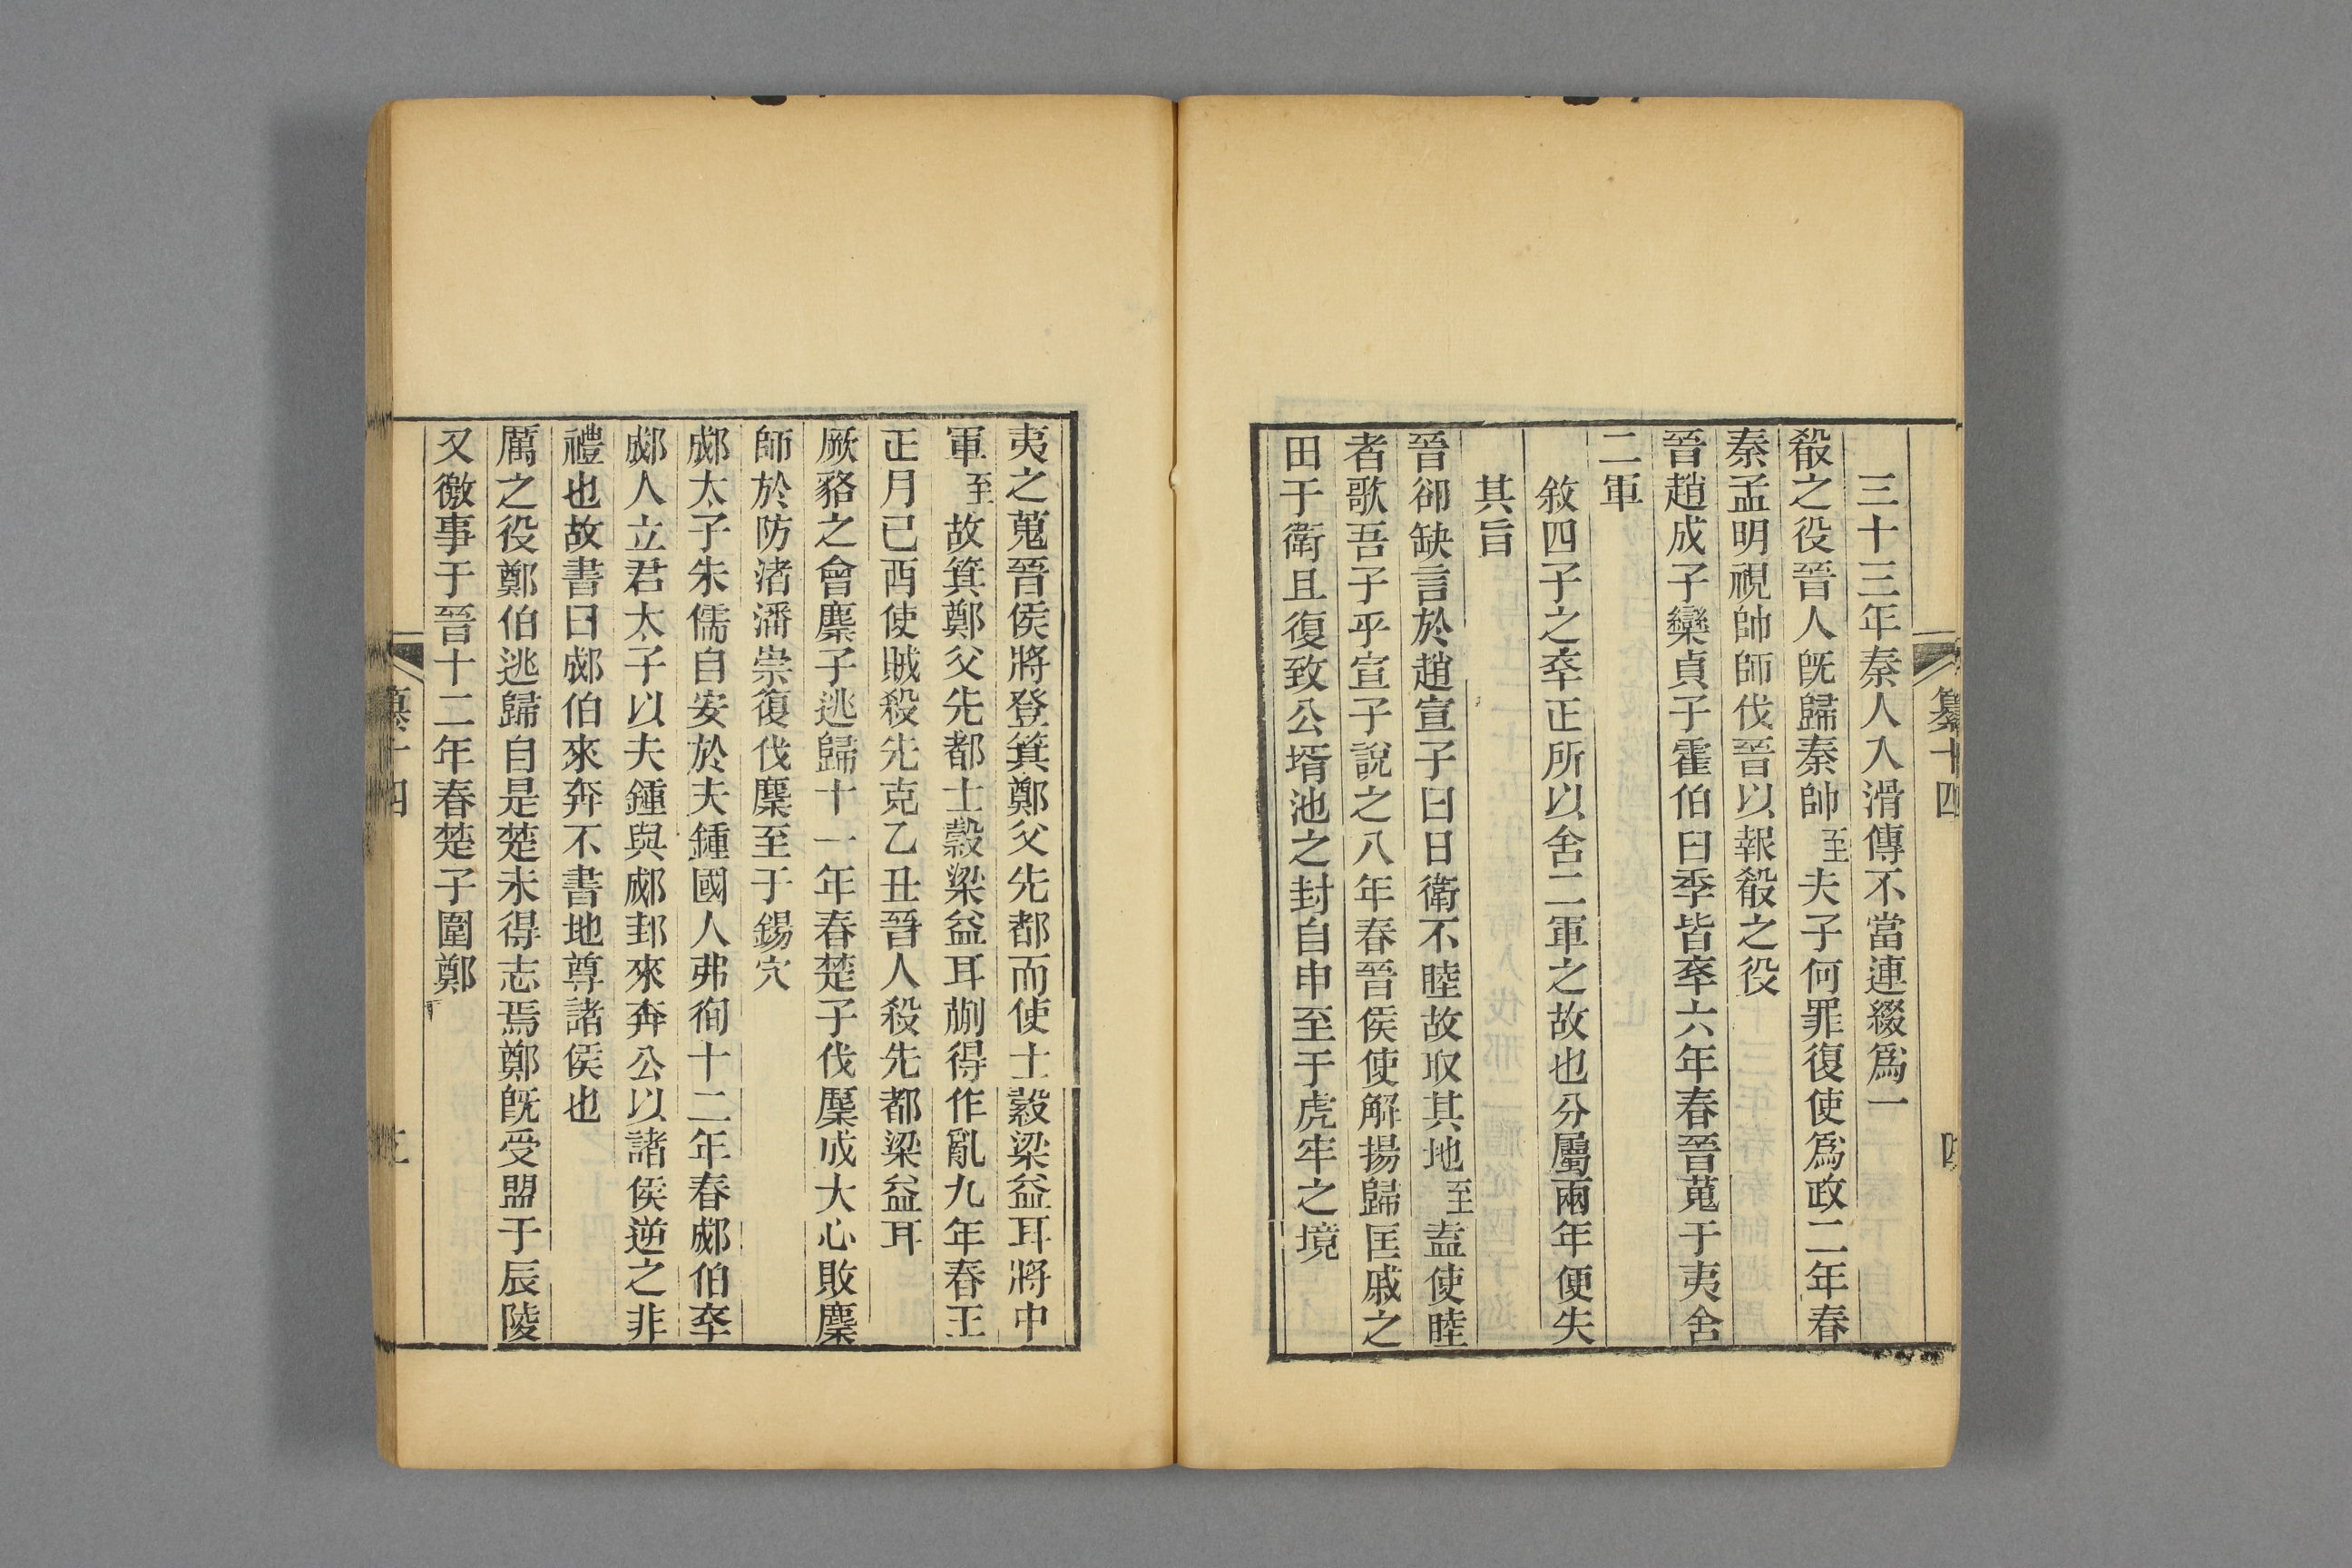 纂十四
三十三年秦人入滑傳不當連綴爲一
殽之役晉人旣歸秦帥至夫子何罪復使爲政二年春
秦孟明視帥師伐晉以報殽之役
晉趙成子欒貞子霍伯臼季皆卒六年春晉蒐于夷舍
二軍
敘四子之卒正所以舍二軍之故也分屬兩年便失
其旨
晉郤缺言於趙宣子曰日衛不睦故取其地至盍使睦
者歌吾子乎宣子說之八年春晉侯使解揚歸匡戚之
田于衛且復致公壻池之封自申至于虎牢之境
夷之蒐晉侯將登箕鄭父先都而使士縠梁益耳將中
軍至故箕鄭父先都士縠梁益耳蒯得作亂九年春王
正月己酉使賊殺先克乙丑晉人殺先都梁益耳
厥貉之會麇子逃歸十一年春楚子伐麇成大心敗麇
師於防渚潘崇復伐麇至于錫穴
郕太子朱儒自安於夫鍾國人弗徇十二年春郕伯卒
郕人立君太子以夫鍾與郕邽來奔公以諸侯逆之非
禮也故書曰郕伯來奔不書地尊諸侯也
厲之役鄭伯逃歸自是楚未得志焉鄭旣受盟于辰陵
又徼事于晉十二年春楚子圍鄭
纂十四